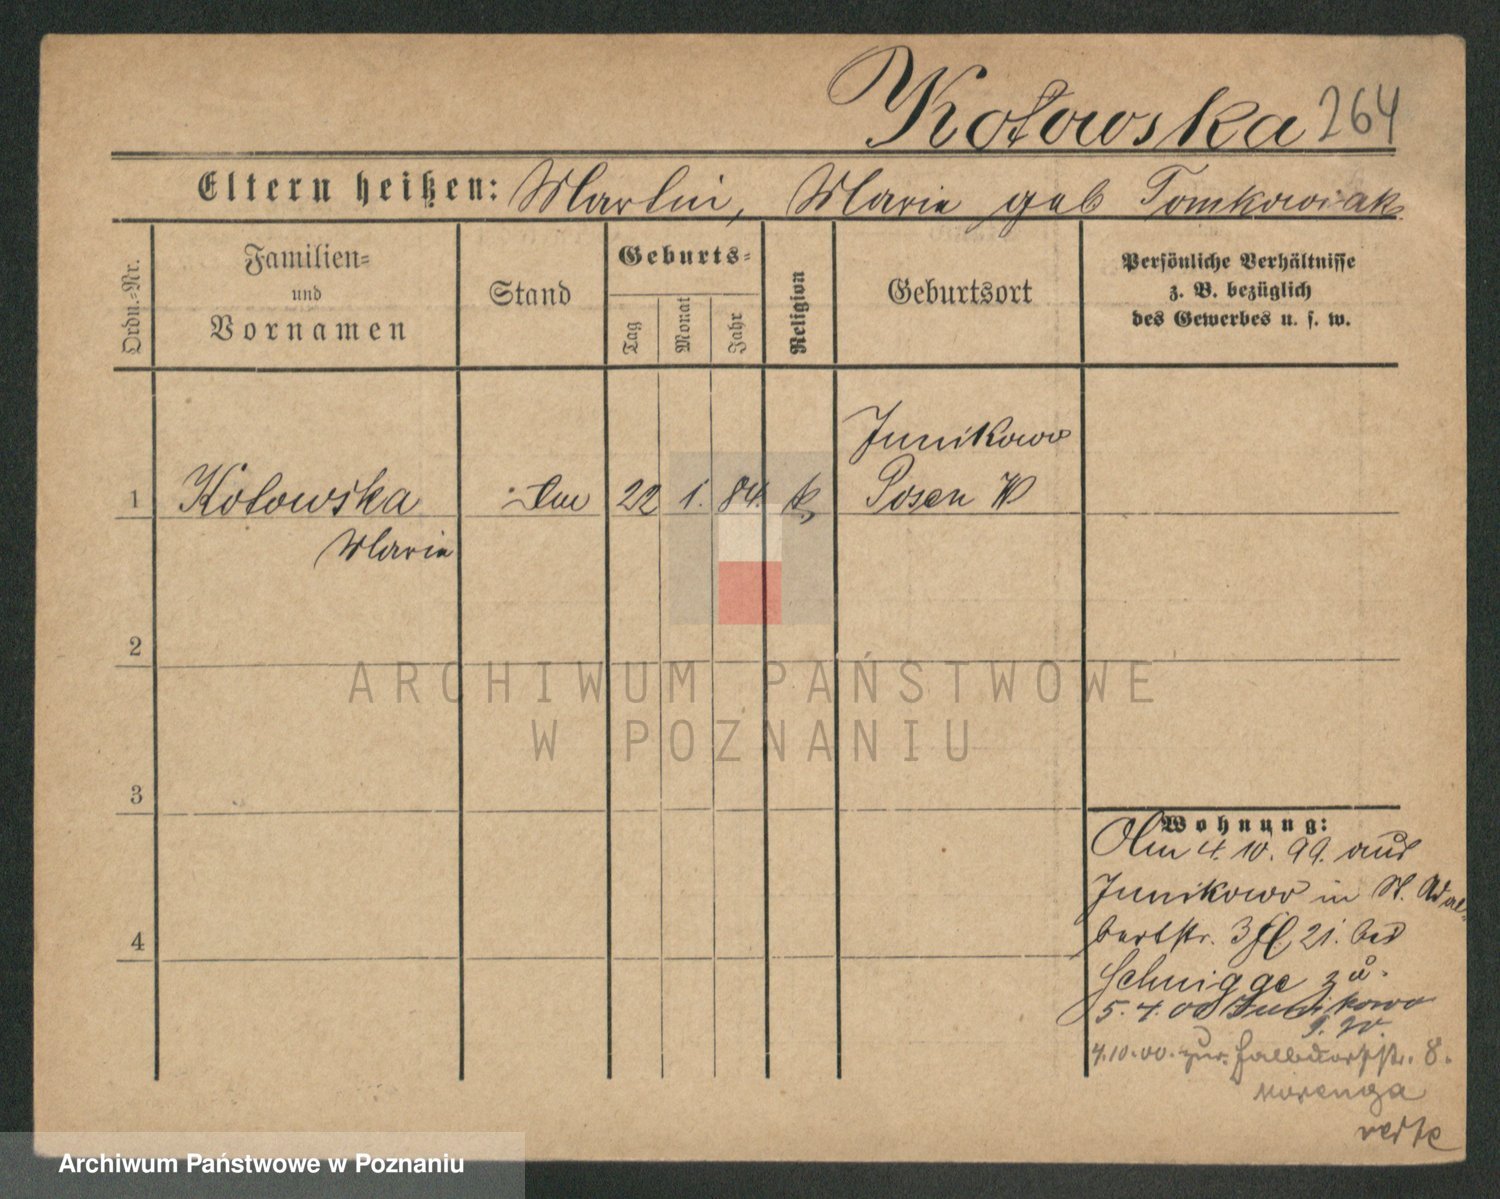 Kotowska 264
Eltern heißen: Martin, Marie geb Tomkowiak
Ordn.-Nr.
Familien-
und
Vornamen
Stand
Geburts-
Tag
Monat
Jahr
Religion
Geburtsort
Persönliche Verhältnisse
z. B. bezüglich
des Gewerbes u. s. w.
Junikowo
1 Kotowska 22 1. 84. k. Posen W
Marie
2
3
4
Wohnung:
Am 4. 10. 99. aus
Junikowo in St. Adal-
bertstr. 3 21. bei
Schnigge zu.
5. 4. 00 Junikowo
P. W.
4.10.00. zur 8.
verte
ARCHIWUM PAŃSTWOWE
W POZNANIU
Archiwum Państwowe w Poznaniu